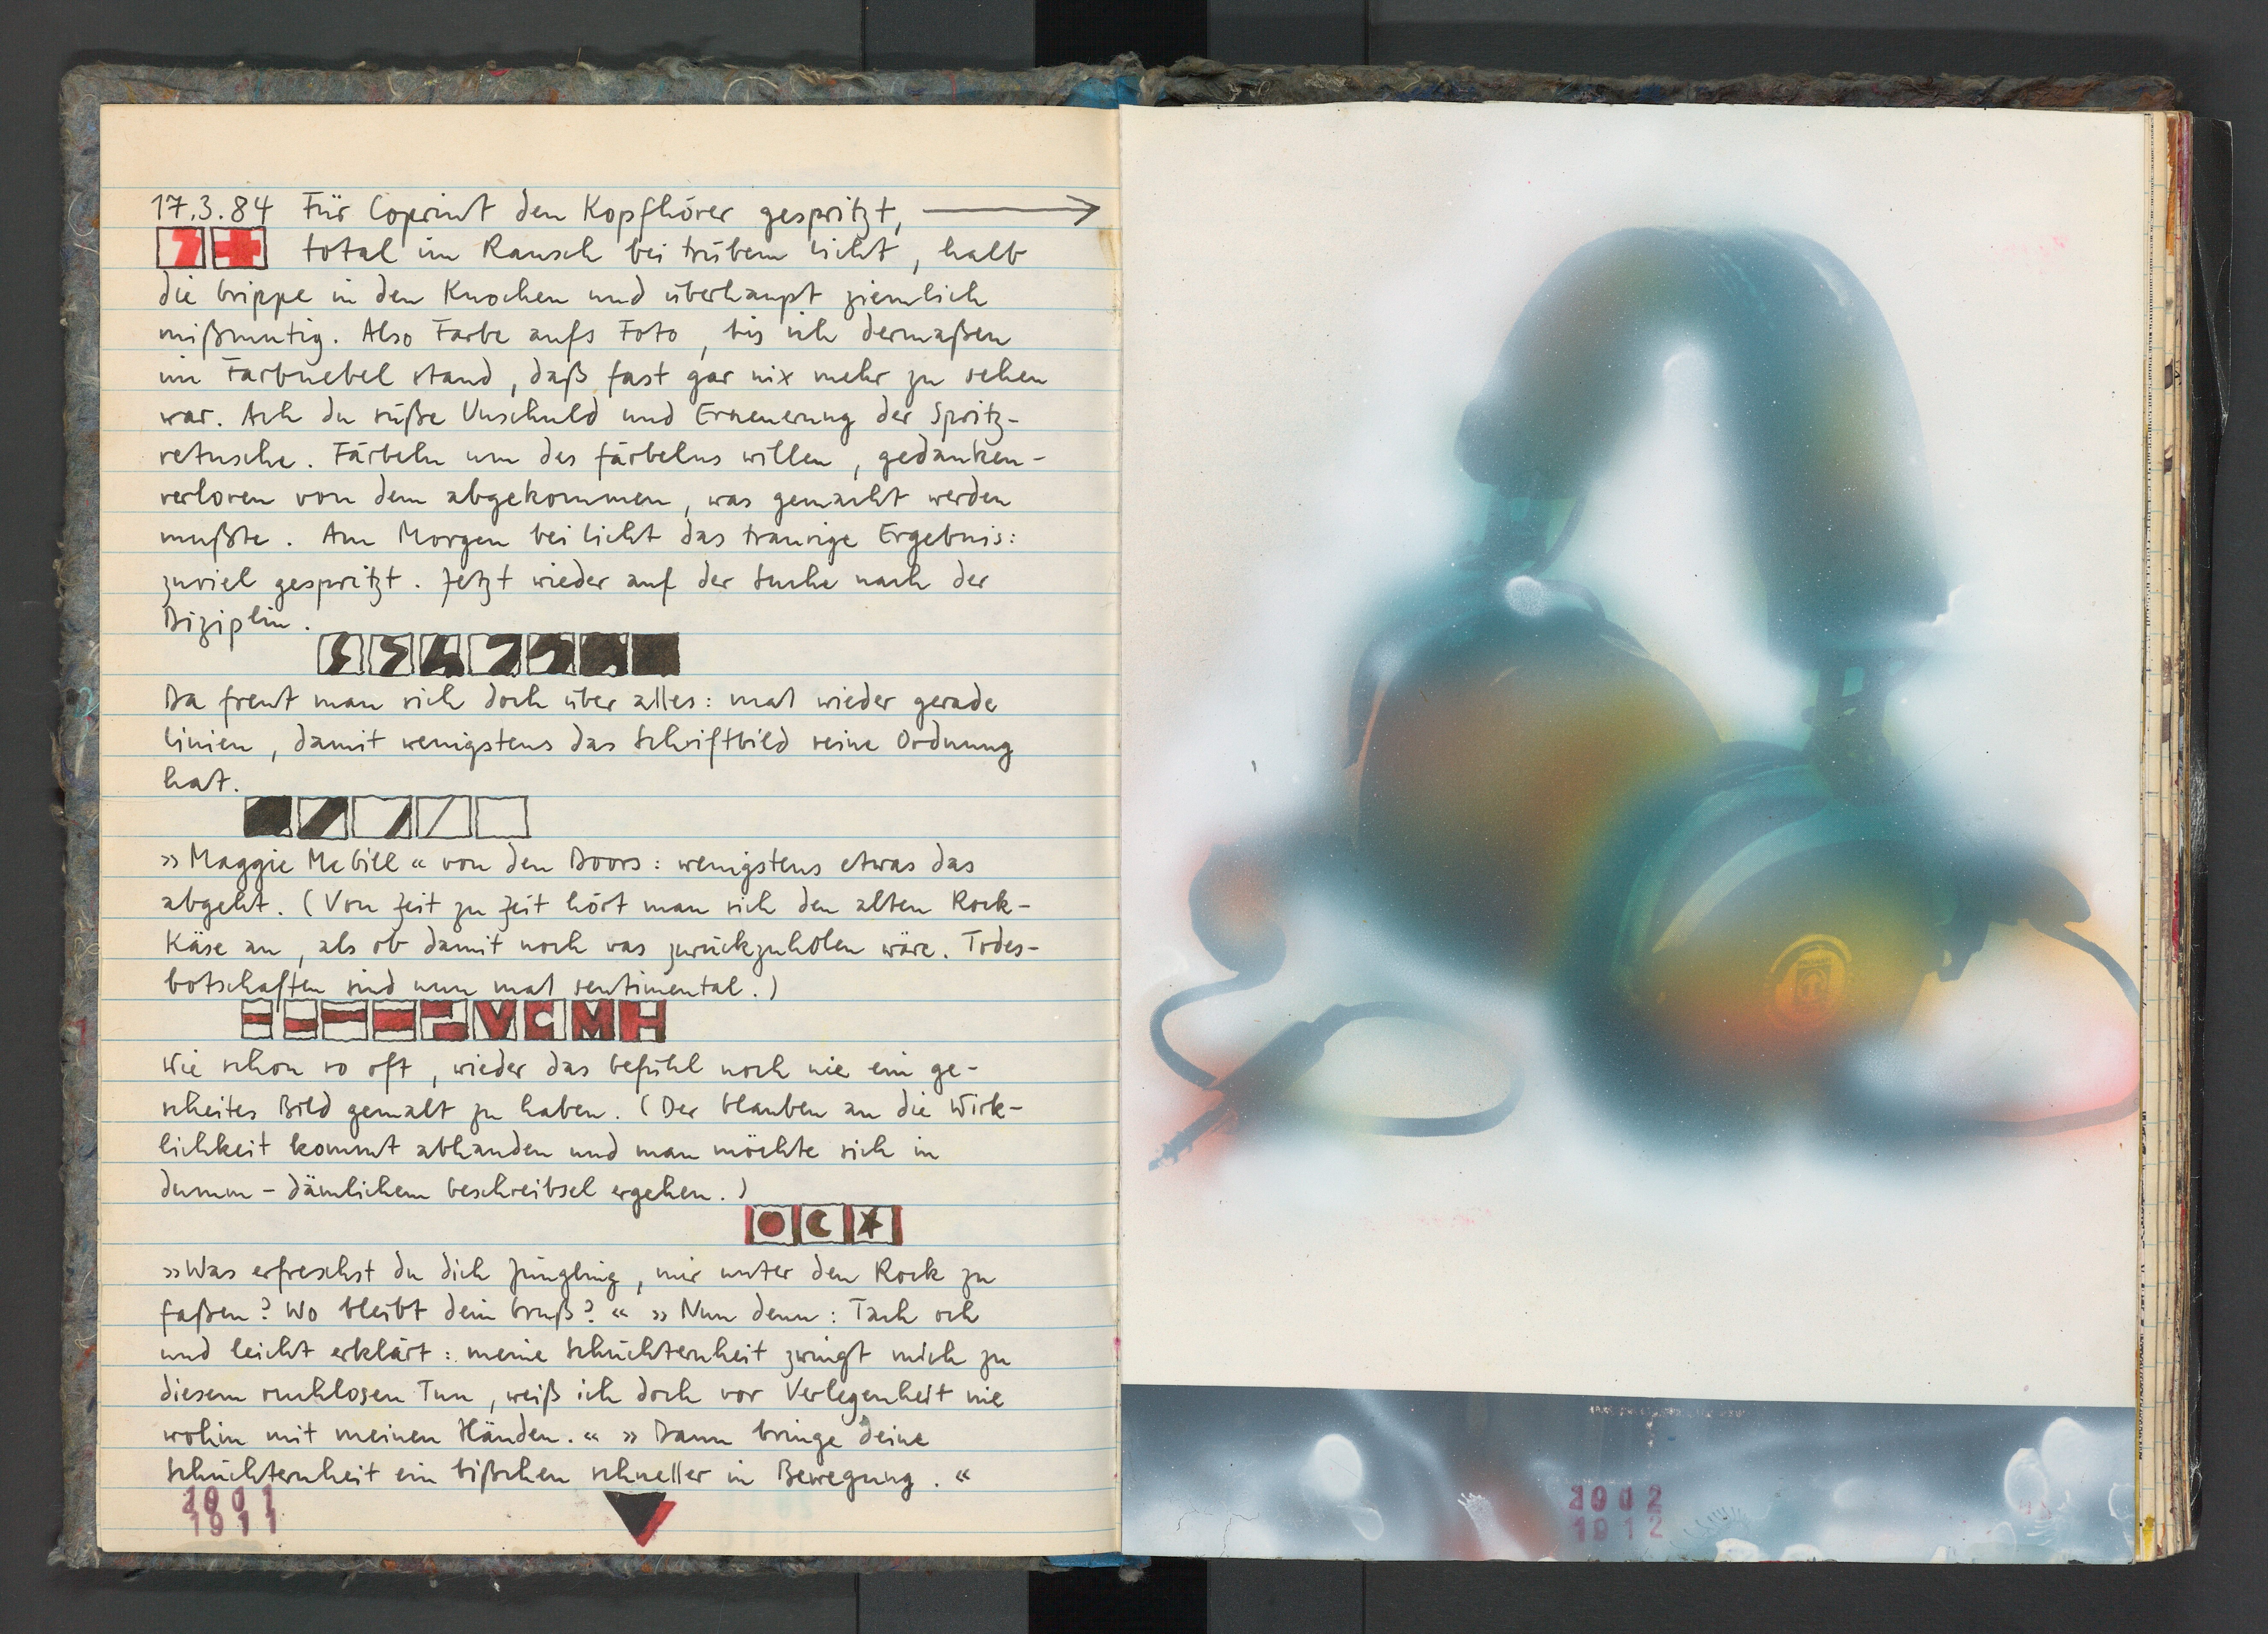 17.3.84 Für Coprint den Kopfhörer gespritzt,
total im Rausch bei trübem Licht, halb
die Grippe in den Knochen und überhaupt ziemlich
mißmutig. Also Farbe aufs Foto, bis ich dermaßen
im Farbnebel stand, daß fast gar nix mehr zu sehen
war. Ach du süße Unschuld und Erneuerung der Spritz-
retusche. Färbeln um des färbelns willen, gedanken-
verloren von dem abgekommen, was gemacht werden
mußte. Am Morgen bei Licht das traurige Ergebnis:
zuviel gespritzt. Jetzt wieder auf der Suche nach der
Diziplin.
Da freut man sich doch über alles: mal wieder gerade
Linien, damit wenigstens das Schriftbild seine Ordnung
hat.
»Maggie McGill« von den Doors: wenigstens etwas das
abgeht. (Von Zeit zu Zeit hört man sich den alten Rock-
Käse an, als ob damit noch was zurückzuholen wäre. Todes-
botschaften sind nun mal sentimental.)
V G M H
Wie schon so oft, wieder das Gefühl noch nie ein ge-
scheites Bild gemalt zu haben. (Der Glauben an die Wirk-
lichkeit kommt abhanden und man möchte sich in
dumm-dämlichem Geschreibsel ergehen.)
»Was erfrechst du dich Jüngling, mir unter den Rock zu
faßen? Wo bleibt dein Gruß?« »Nun denn: Tach och
und leicht erklärt: meine Schüchternheit zwingt mich zu
diesem ruchlosen Tun, weiß ich doch vor Verlegenheit nie
wohin mit meinen Händen.« »Dann bringe deine
Schüchternheit ein bißchen schneller in Bewegung.«
1911
1912